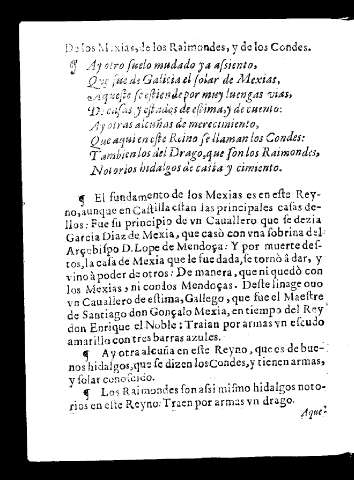 De los Mexias, de los Raimondes, y de los Condes.
¶ Ay otro suelo mudado ya assiento,
Que fue de Galicia el solar de Mexias,
Aqueste se estiende por muy luengas vias,
De casas y estados de estima, y de cuento:
Ay otras alcuñas de merecimiento,
Que aqui en este Reino se llaman los Condes:
Tambien los del Drago, que son los Raimondes,
Notorios hidalgos de casta y cimiento.
¶ El fundamento de los Mexias es en este Rey-
no, aunque en Castilla estan las principales casas de-
llos: Fue su principio de vn Cauallero que se dezia
Garcia Diaz de Mexia, que casò con vna sobrina del
Arçobispo D. Lope de Mendoça: Y por muerte des-
tos, la casa de Mexia que le fue dada, se tornò à dar, y
vino à poder de otros: De manera, que ni quedò con
los Mexias, ni con los Mendoças. Deste linage ouo
vn Cauallero de estima, Gallego, que fue el Maestre
de Santiago don Gonçalo Mexia, en tiempo del Rey
don Enrique el Noble: Traian por armas vn escudo
amarillo con tres barras azules.
¶ Ay otra alcuña en este Reyno, que es de bue-
nos hidalgos, que se dizen los Condes, y tienen armas,
y solar conoscido.
¶ Los Raimondes son assi mismo hidalgos noto-
rios en este Reyno: Traen por armas vn drago.
Aque?